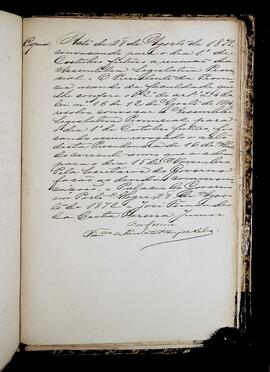 Copia Acto de 28 de Agosto de 1872,
convocando para o dia 1º de
Outubro futuro a reunião da
Assemblea Legislativa Provin-
cial. O Presidente da Provin-
cia usando da faculdade que
lhe confere o § 2º do art. 24 da
lei nº 16 de 12 de Agosto de 1834
resolve convocar a Assemblea
Legislativa Provincial para
o dia 1º de Outubro futuro, fi-
cando assim
desta Presidencia de 16 de
do corrente anno que a
para o dia de Novembro.
Pela Secretaria do Governo
fação as devidas communi-
cações. Palacio do Governo
em Porto Alegre 28 de Agos-
to de 1872. José Fernandes
da Costa Pereira Junior
Conforme